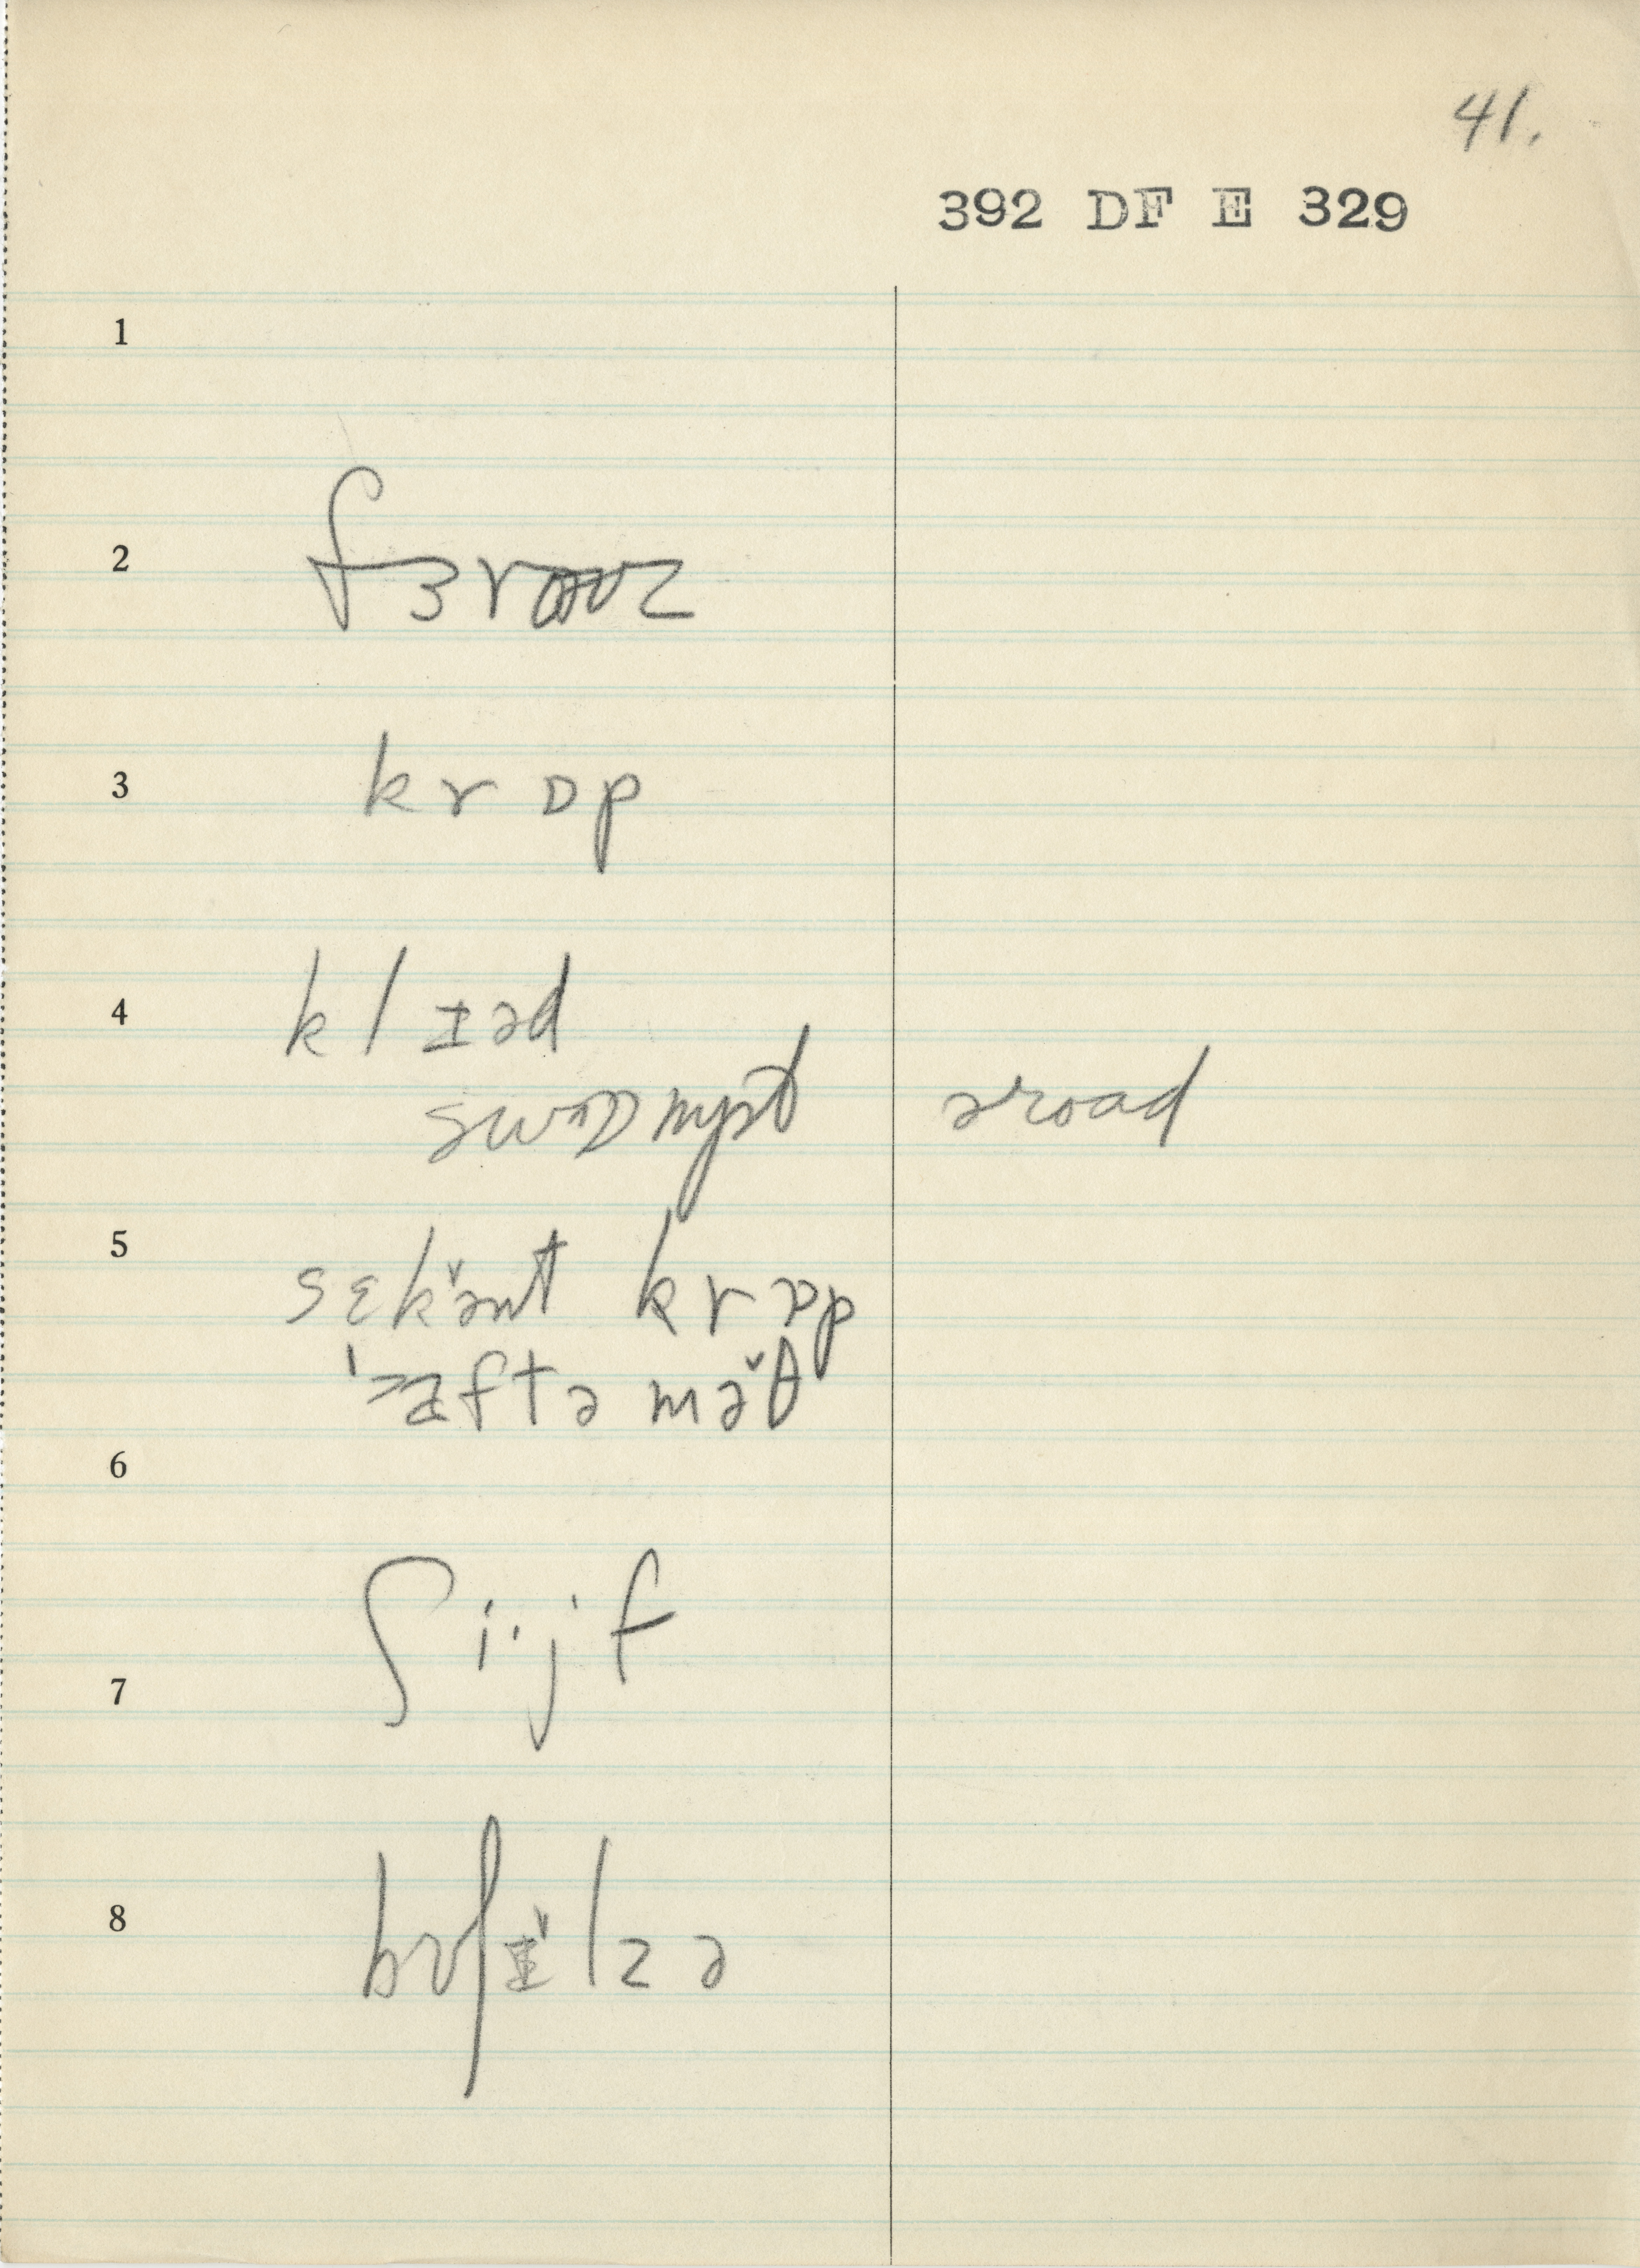 41.
392 DF E 329
1
2 fɜrouz
3 krɒp
4 klɪəd
swɒmpt əroad
5 sɛkə̆nt krɒp
ˈæftə mə̆θ
6
7 ʃi·jf
8 bʊʃɪ̆lzə